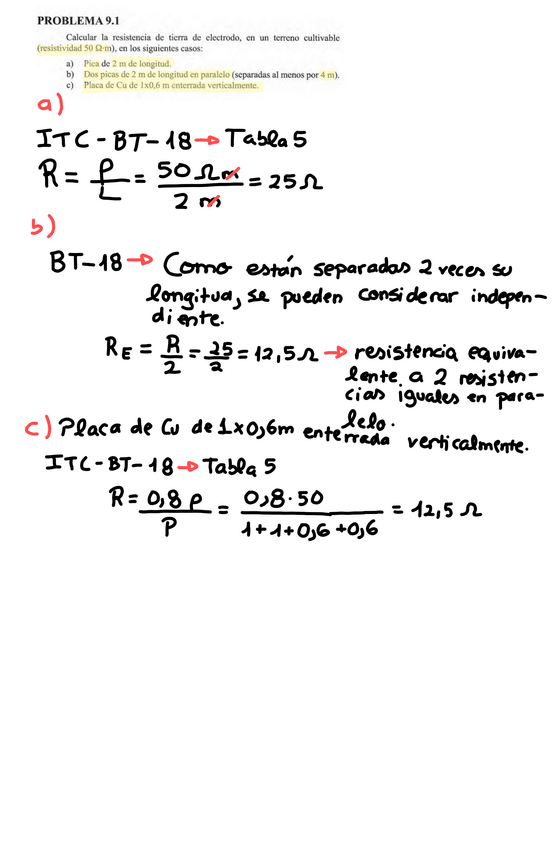 PROBLEMA 9.1
Calcular la resistencia de tierra de electrodo, en un terreno cultivable
(resistividad 50 Ω·m), en los siguientes casos:
a) Pica de 2 m de longitud.
b) Dos picas de 2 m de longitud en paralelo (separadas al menos por 4 m).
c) Placa de Cu de 1x0,6 m enterrada verticalmente.
a)
ITC-BT-18 → Tabla 5
R = ρ/L = 50 Ωm / 2 m = 25 Ω
b)
BT-18 → Como están separadas 2 veces su
longitud, se pueden considerar indepen-
diente.
RE = R/2 = 25/2 = 12,5 Ω → resistencia equiva-
lente a 2 resisten-
cias iguales en para-
lelo.
c) Placa de Cu de 1x0,6m enterrada verticalmente.
ITC-BT-18 → Tabla 5
R = 0,8 ρ / P = 0,8·50 / 1+1+0,6+0,6 = 12,5 Ω